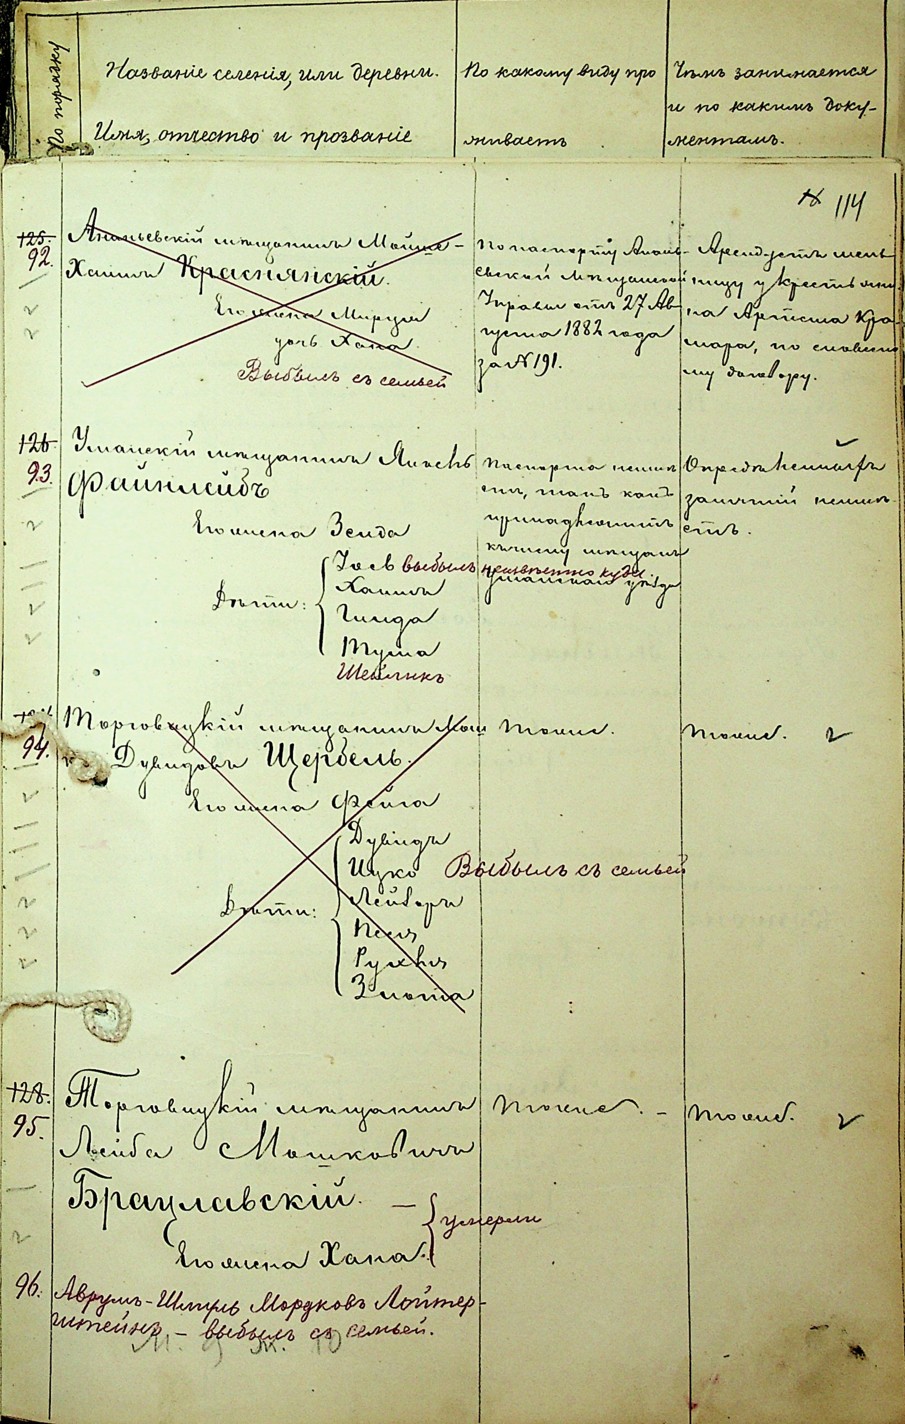 По порядку
Названіе селенія, или деревни.
Имя, отчество и прозваніе
По какому виду про
живаетъ
Чѣмъ занимается
и по какимъ доку-
ментамъ.
114
125.
92.
Ананьевскій мѣщанинъ Мойше-
Хаимъ Краснянскій.
Его жена Мириля
дочь Хана.
Выбылъ съ семьей
По паспорту Анань-
евской Мѣщанской
Управы отъ 27 Ав-
густа 1882 года
за № 191.
Арендуетъ мель-
ницу у крестьяни-
на Артема Кра-
мара, по словесно-
му договору.
126.
93.
Уманскій мѣщанинъ Янкель
Файнлейбъ
Его жена Зельда
Дѣти:
Іосъ выбылъ неизвѣстно куда
Хаимъ
Гинда
Тума
Шейликъ
Паспорта неимѣ-
етъ, такъ какъ
принадлежитъ
къ числу мѣщанъ
Уманскаго уѣзда
Опредѣленныхъ
занятій неимѣ-
етъ.
94.
Торговицкій мѣщанинъ Мош
ко Дувидовъ Щербель.
Его жена Фейга
Дѣти:
Дувидъ
Ицко
Выбылъ съ семьей
Лейборъ
Песя
Рухля
Злота
тоже.
тоже.
128.
95.
Торговицкій мѣщанинъ
Лейба Мошковичъ
Брацлавскій. —
Его жена Хана.
умерли
тоже. –
тоже.
96.
Аврумъ-Шмуль Мордковъ Лойтер-
штейнъ – выбылъ съ семьей.
М. 9 ж. 10